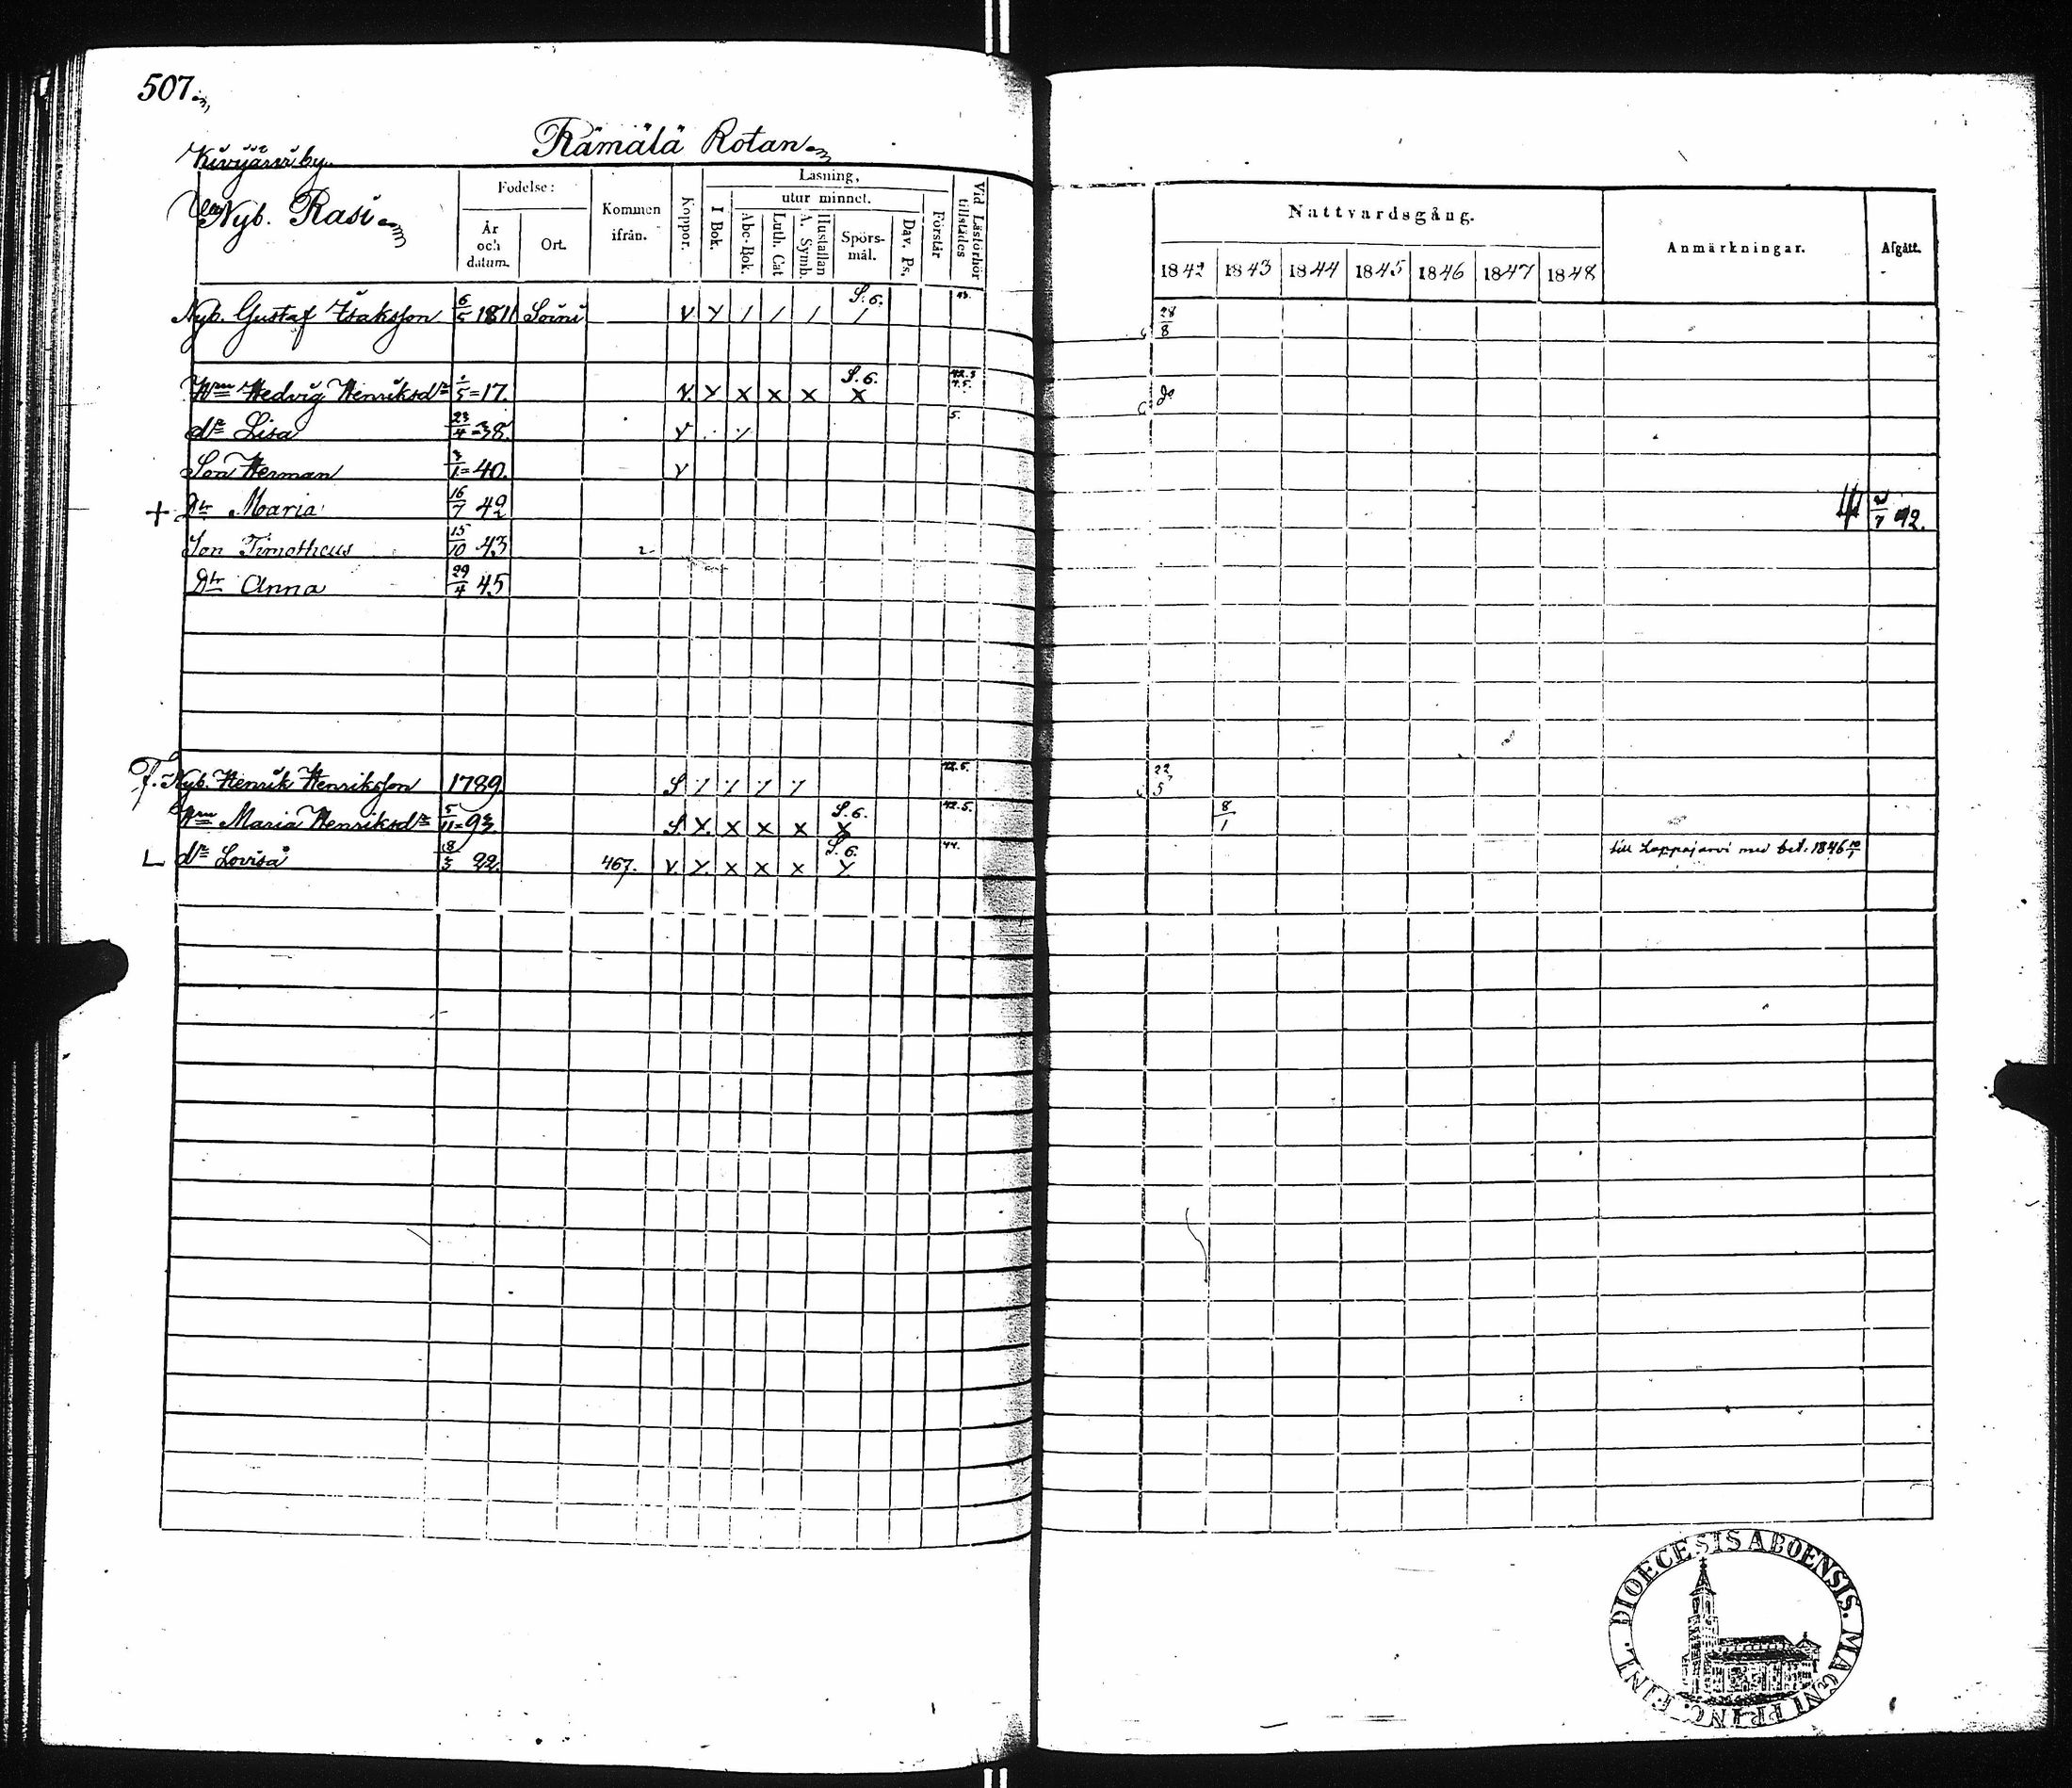 507.
Rämälä Rotan
Kivijärvi by.
Nyb. Rasi
Fodelse:
År och datum.
Ort.
Kommen ifrån.
Koppor.
Lasning,
I Bok.
utur minnet.
Abc-Bok.
Luth. Cat
Hustaflan A. Symb.
Spörs-mål.
Dav. Ps.
Förstår
Vid Läsförhör tillstädes
Nattvardsgång.
1842 1843 1844 1845 1846 1847 1848
Anmärkningar.
Afgått.
Nyb. Gustaf Isaksson 6/5 1811 Soini V Y / / / S.6. / 43. 28/8
Hru Hedvig Henriksdr /5 = 17. V. Y X X X S.6. X do
dr Lisa 23/4 = 38. V 5.
Son Herman 3/1 = 40. V
+ Dr Maria 16/7 42 /7 42.
Son Timotheus 15/10 43
Dr Anna 29/4 45
F. Nyb. Henrik Henriksson 1789 S 42.5. 22/5
Hru Maria Henriksdr 5/11 = 93. S. X. X X X S.6. X 42.5. 8/1
L dr Lovisa 8/3 22. 467. V. Y. X X X S.6. Y. 44. till Lappajärvi med bet. 1846
DIOECESIS ABOENSIS. MAGNI PRINC. FINL.